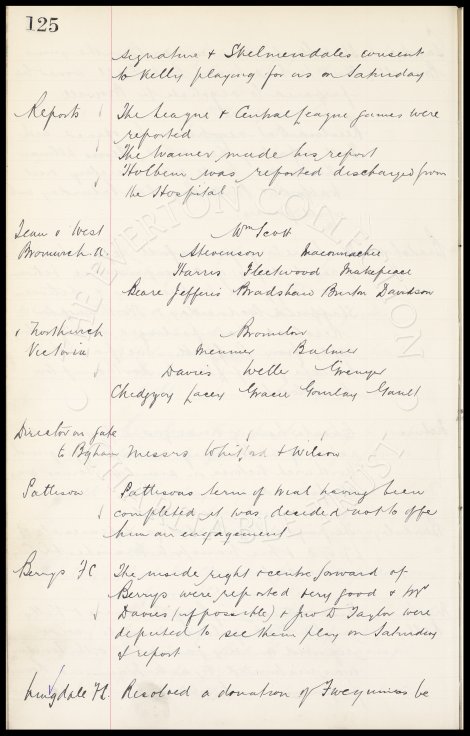 125
signature & Skelmersdales consent
to Kelly playing for us on Saturday
Reports The League & Central League games were
reported
The trainer made his report
Holbem was reported discharged from
the Hospital
Team v West Wm Scott
Bromwich A. Stevenson Maconnachie
Harris Fleetwood Makepeace
Beare Jefferis Bradshaw Burton Davidson
v Northwich Bromilow
Victoria Meunier Balmer
Davies Weller Grenyer
Chedgzoy Lacey Gracie Gourlay Gault
Director on gate
to B Messrs Whitford & Wilson
Pattison Pattisons term of trial having been
completed it was decided not to offe
him an engagement
Berrys FC The inside right & centre forward of
Berrys were reported very good & Mr
Davies (if possible) & Jno D Taylor were
deputed to see them play on Saturday
& report
F.C. Resolved a donation of Two guineas be
THE EVERTON COLLECTION
CHARITABLE TRUST